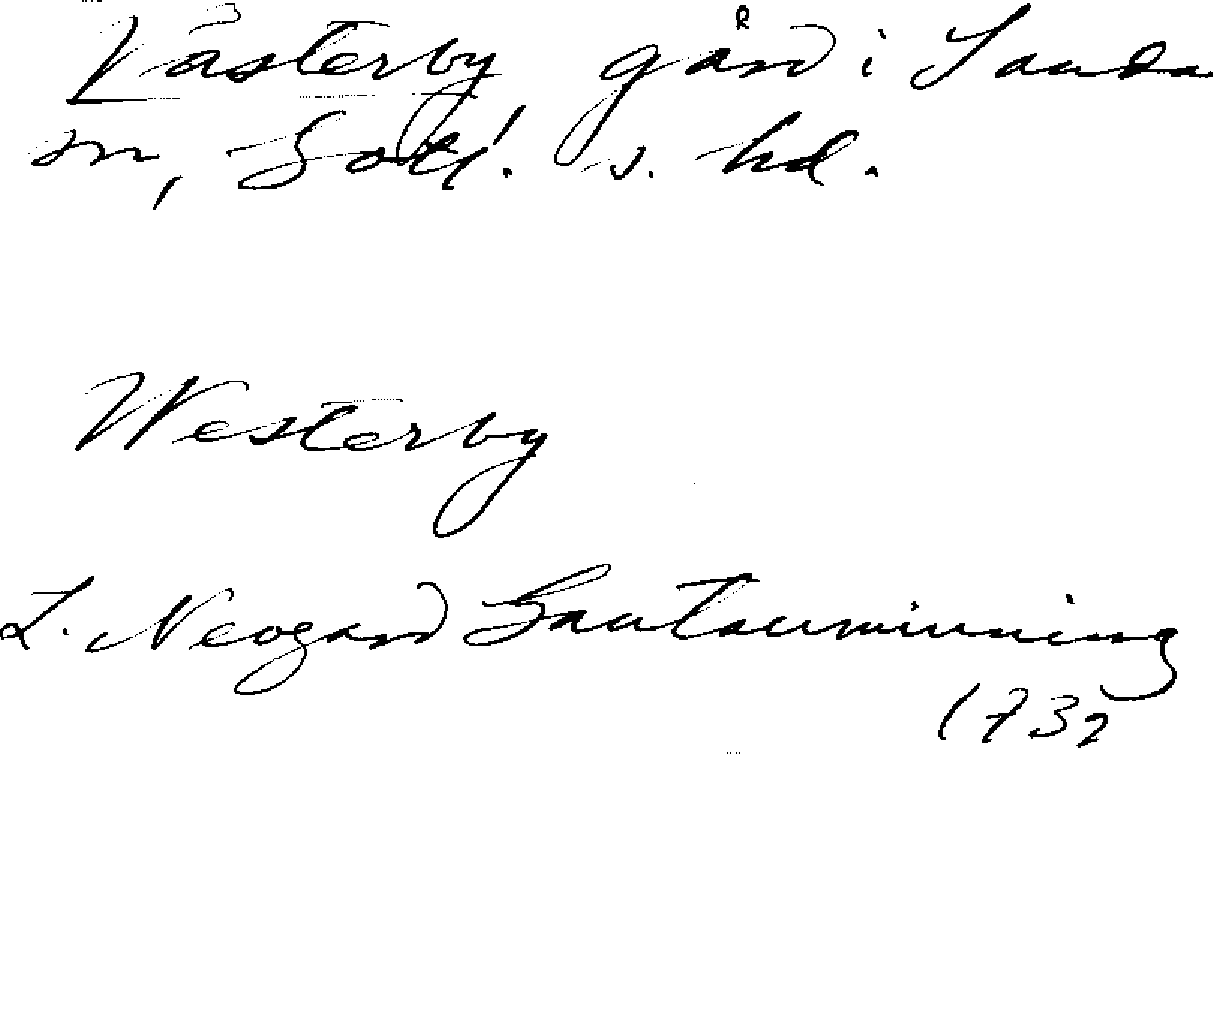 Västerby gård i Sanda
sn, Gotl. s. hd.
Westerby
L. Neogard Gautauminning
1732